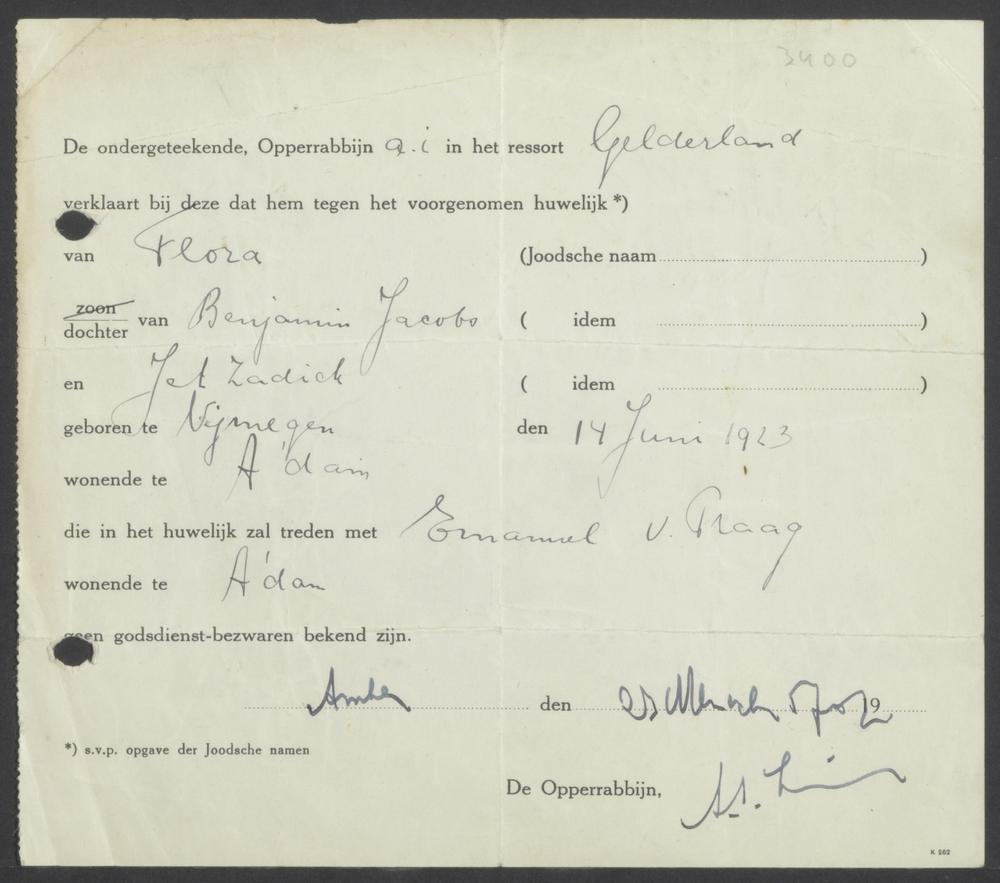 3400
De ondergeteekende, Opperrabbijn a.i in het ressort Gelderland
verklaart bij deze dat hem tegen het voorgenomen huwelijk *)
van Flora (Joodsche naam )
zoon
dochter van Benjamin Jacobs ( idem )
en Jet Zadick ( idem )
geboren te Nijmegen den 14 Juni 1923
wonende te A'dam
die in het huwelijk zal treden met Emanuel v. Praag
wonende te A'dam
geen godsdienst-bezwaren bekend zijn.
den 19
*) s.v.p. opgave der Joodsche namen
De Opperrabbijn,
K 262